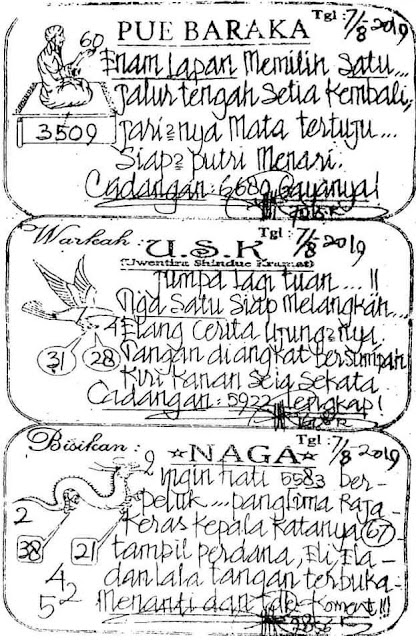 PUE BARAKA
Tgl : 7/8 2019
60
Enam Lapan Memilih Satu...
Jalur tengah Setia Kembali,
3509
Jari2nya Mata tertuju...
Siap2 putri Menari.
Cadangan : 6680 Gayanya!
Warkah :
U.S.K
Tgl : 7/8 2019
(Uwentira Shinduc Kramat)
Jumpa lagi tuan ... !!
Nga Satu Siap Melangkah...
4
Elang Cerita Ujung2nya
31 28
Tangan diangkat bersumpah
Kiri Kanan Seia Sekata
Cadangan : 5922 lengkap!
Bisikan :
☆NAGA☆
Tgl : 7/8 2019
2
Ingin hati 5583 ber-
peluk ... panglima Raja-
2
Keras kepala katanya 67-
38 21
tampil perdana, Eli, Ela-
4
dan lala tangan terbuka-
5 2
Menanti dan Koment !!!